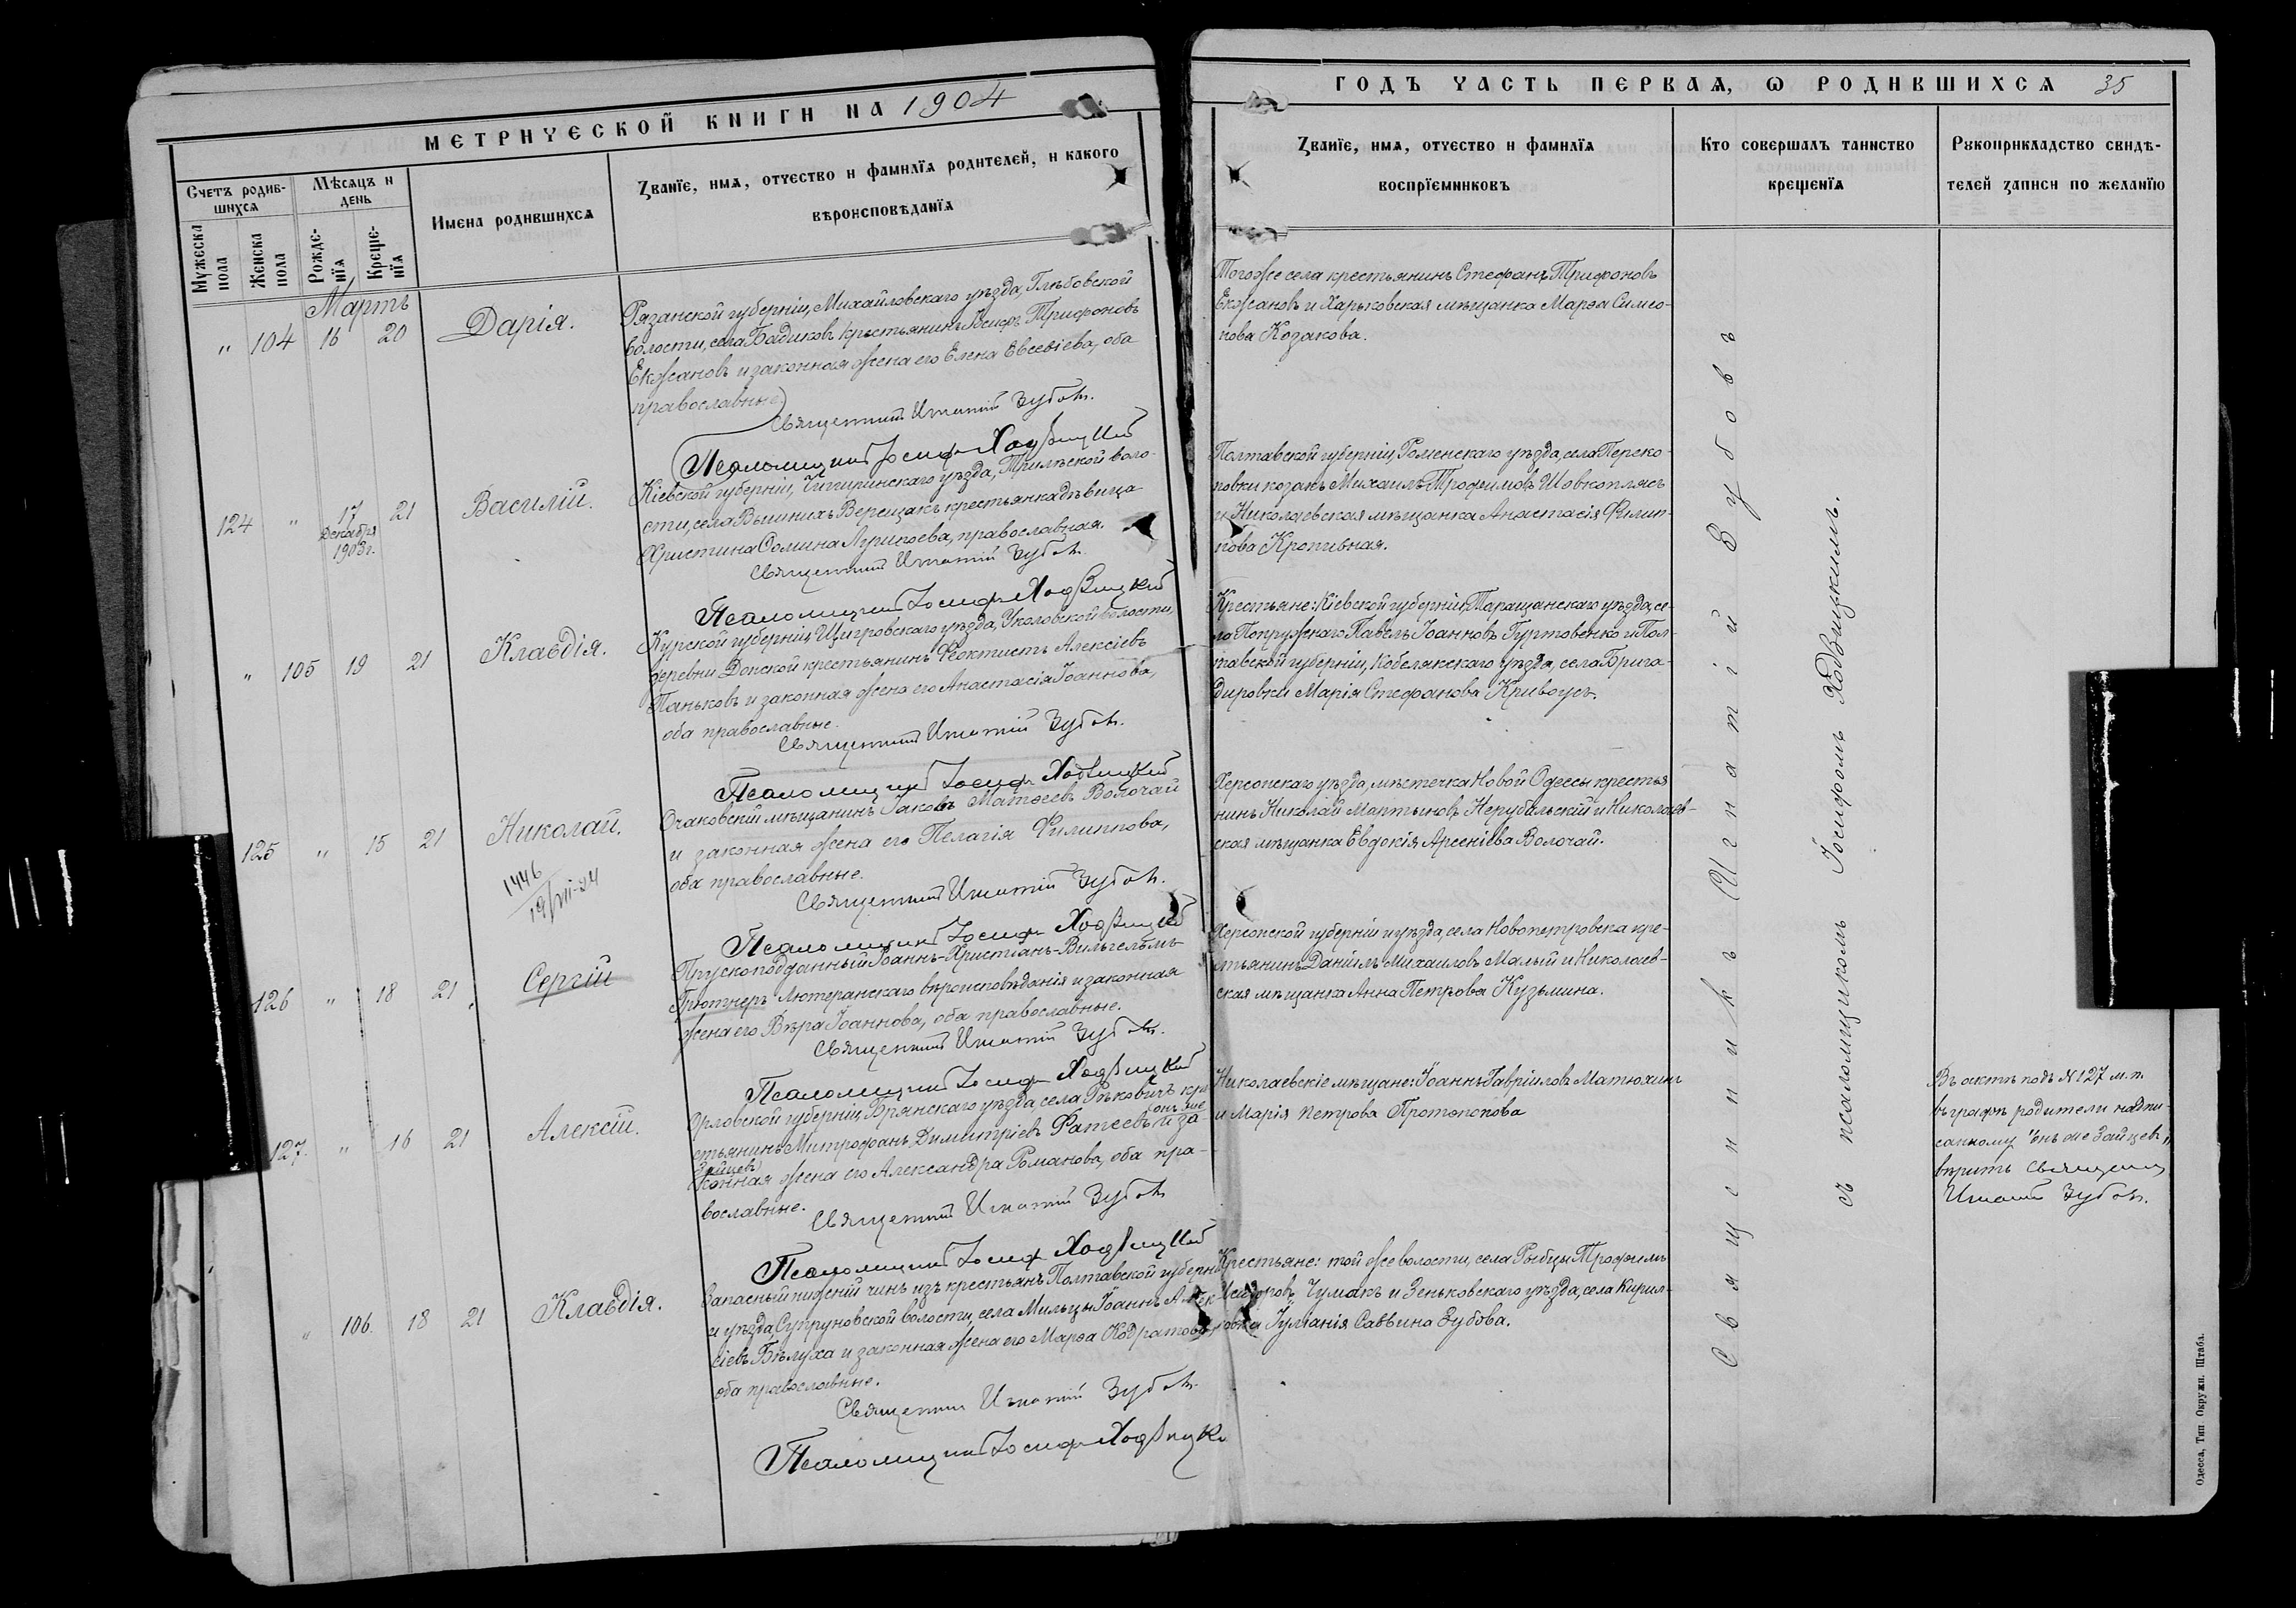 МЕТРИЧЕСКОЙ КНИГИ НА 1904
Счетъ родив-
шихся
Мѣсяцъ и
день
Мужеска
пола
Женска
пола
Рожде-
нїя
Креще-
нїя
Имена родившихся
Званїе, имя, отчество и фамилїя родителей, и какого
вѣроисповѣданїя
Мартъ
" 104 16 20
Дарія.
Рязанской губерніи, Михайловскаго уѣзда, Глѣбовской
волости, села Бадиковъ крестьянинъ Іосифъ Трифоновъ
Екжановъ и законная жена его Елена Евсевіева, оба
православные.
Священникъ Игнатій Зубовъ.
Псаломщикъ Іосифъ Ходзицкій
124 " 17 21
Декабря
1903 г.
Василій.
Кіевской губерніи, Чигиринскаго уѣзда, Трилѣской воло-
сти, села Вышнихъ Верещакъ крестьянка дѣвица
Христина Сомина Луригоева, православная.
Священникъ Игнатій Зубовъ.
Псаломщикъ Іосифъ Ходзицкій
" 105 19 21
Клавдія.
Курской губерніи, Щигровскаго уѣзда, Уколовской волости,
деревни Донской крестьянинъ Феоктистъ Алексіевъ
Паньковъ и законная жена его Анастасія Іоаннова,
оба православные.
Священникъ Игнатій Зубовъ.
Псаломщикъ Іосифъ Ходзицкій
125 " 15 21
Николай.
1446
19/VII-24
Очаковскій мѣщанинъ Іаковъ Матѳеевъ Волочай
и законная жена его Пелагія Филиппова,
оба православные.
Священникъ Игнатій Зубовъ.
Псаломщикъ Іосифъ Ходзицкій
126 " 18 21
Сергій
Прускоподданный Іоаннъ-Христіанъ-Вильгельмъ
Грютнеръ Лютеранскаго вѣроисповѣданія и законная
жена его Вѣра Іоаннова, оба православные.
Священникъ Игнатій Зубовъ.
Псаломщикъ Іосифъ Ходзицкій
127. " 16 21
Алексій.
Орловской губерніи, Брянскаго уѣзда, села Рѣковичъ кре-
онъ же
стьянинъ Митрофанъ Димитріевъ Фатеевъ и за-
Зайцевъ
конная жена его Александра Романова, оба пра-
вославные.
Священникъ Игнатій Зубовъ
Псаломщикъ Іосифъ Ходзицкій
" 106. 18 21
Клавдія.
Запасный нижній чинъ изъ крестьянъ Полтавской губерніи
и уѣзда, Супруновской волости, села Мильцы Іоаннъ Алек
сіевъ Бѣлуха и законная жена его Марѳа Кодратова
оба православные.
Священникъ Игнатій Зубовъ.
Псаломщикъ Іосифъ Ходзицкі
ГОДЪ ЧАСТЬ ПЕРВАЯ, Ѡ РОДИВШИХСЯ 35
Званїе, имя, отчество и фамилїя
воспрїемниковъ
Кто совершалъ таинство
крещенїя
Рукоприкладство свидѣ-
телей записи по желанїю
Того же села крестьянинъ Стефанъ Трифоновъ
Екжановъ и Харьковская мѣщанка Марѳа Симео-
нова Козакова.
Полтавской губерніи, Роменскаго уѣзда, села Переко-
повки козакъ Михаилъ Трофимовъ Шовкоплясъ
и Николаевская мѣщанка Анастасія Филип-
пова Кропивная.
Крестьяне: Кіевской губерніи, Таращанскаго уѣзда, се-
ла Попружнаго Павелъ Іоанновъ Гуртовенко и Пол-
тавской губерніи, Кобелякскаго уѣзда, села Брига-
дировки Марія Стефанова Кривоусъ.
Херсонскаго уѣзда, мѣстечка Новой Одессы крестья
нинъ Николай Мартыновъ Нерубальскій и Николаев-
ская мѣщанка Евдокія Арсеніева Волочай.
Херсонской губерніи и уѣзда, села Новопетровска кре-
стьянинъ Даніилъ Михаиловъ Малый и Николаев-
ская мѣщанка Анна Петрова Кузьмина.
Николаевскіе мѣщане: Іоаннъ Гавріиловъ Матюхинъ
и Марія Петрова Протопопова
Крестьяне: той же волости, села Рыбцы Трофимъ
Исидоровъ Чумакъ и Зеньковскаго уѣзда, села Кирил-
ловка Іуліанія Саввина Зубова.
Священникъ Игнатій Зубовъ
съ псаломщикомъ Іосифомъ Ходзицкимъ.
Въ актѣ подъ № 127 м. п.
въ графѣ родители надпи-
санному "онъ же Зайцевъ"
вѣрить Священникъ
Игнатій Зубовъ.
Одесса, Тип. Окружн. Штаба.